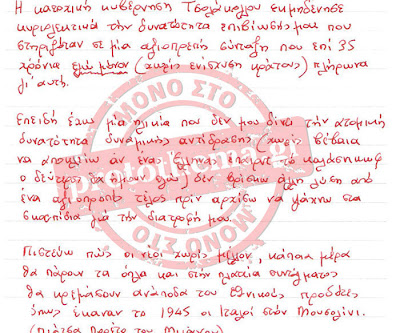 Η κατοχική κυβέρνηση Τσολάκογλου εκμηδένισε
κυριολεκτικά την δυνατότητα επιβίωσής μου που
στηριζόταν σε μία αξιοπρεπή σύνταξη που επί 35
χρόνια εγώ μόνον (χωρίς ενίσχυση κράτους) πλήρωνα
γι' αυτή.
Επειδή έχω μία ηλικία που δεν μου δίνει την ατομική
δυνατότητα δυναμικής αντίδρασης (χωρίς βέβαια
να αποκλείω αν ένας Έλληνας έπαιρνε το καλάσνικωφ
ο δεύτερος θα ήμουν εγώ) δεν βρίσκω άλλη λύση από
ένα αξιοπρεπές τέλος πριν αρχίσω να ψάχνω στα
σκουπίδια για την διατροφή μου.
Πιστεύω πως οι νέοι χωρίς μέλλον, κάποια μέρα
θα πάρουν τα όπλα και στην πλατεία συντάγματος
θα κρεμάσουν ανάποδα τους εθνικούς προδότες
όπως έκαναν το 1945 οι Ιταλοί στον Μουσολίνι.
(Πιάτσα Λορέτο του Μιλάνου)
ΜΟΝΟ ΣΤΟ
ΜΟΝΟ ΣΤΟ